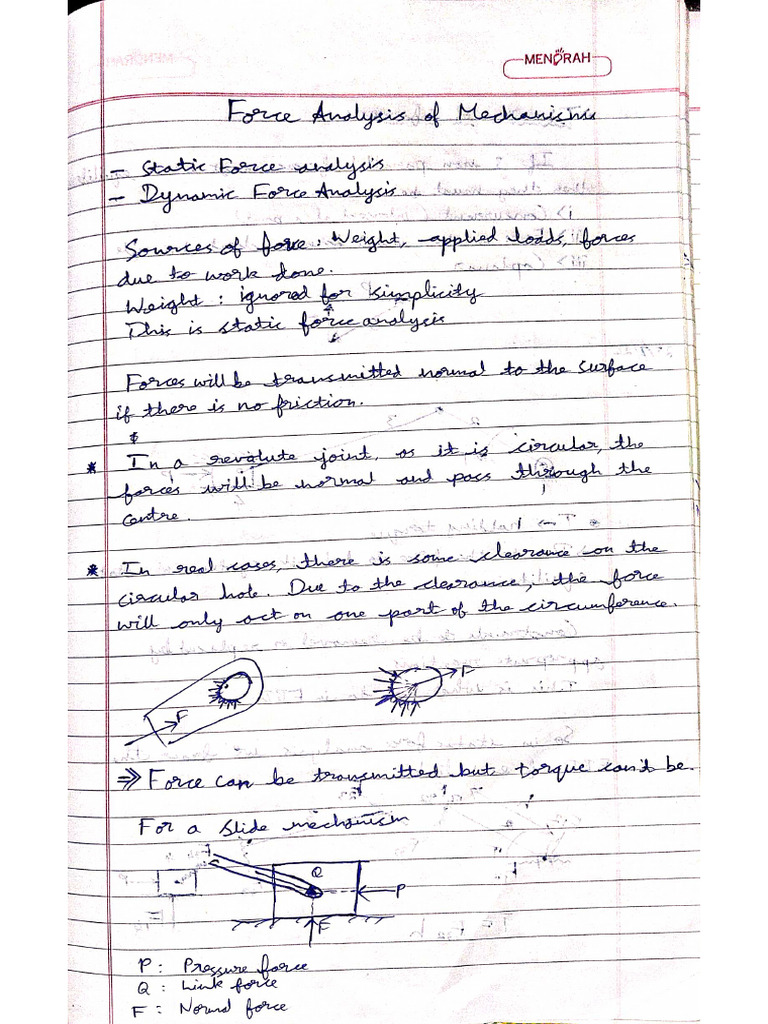 MENORAH
Force Analysis of Mechanisms
- Static Force analysis
- Dynamic Force Analysis
Sources of force: Weight, applied loads, forces
due to work done.
Weight : ignored for simplicity
This is static force analysis
Forces will be transmitted normal to the surface
if there is no friction.
* In a revolute joint, as it is circular, the
forces will be normal and pass through the
centre.
* In real cases, there is some clearance on the
circular hole. Due to the clearance, the force
will only act on one part of the circumference.
F
F
⇒ Force can be transmitted but torque can't be.
For a slide mechanism
Q
P
F
P : Pressure force
Q : Link force
F : Normal force